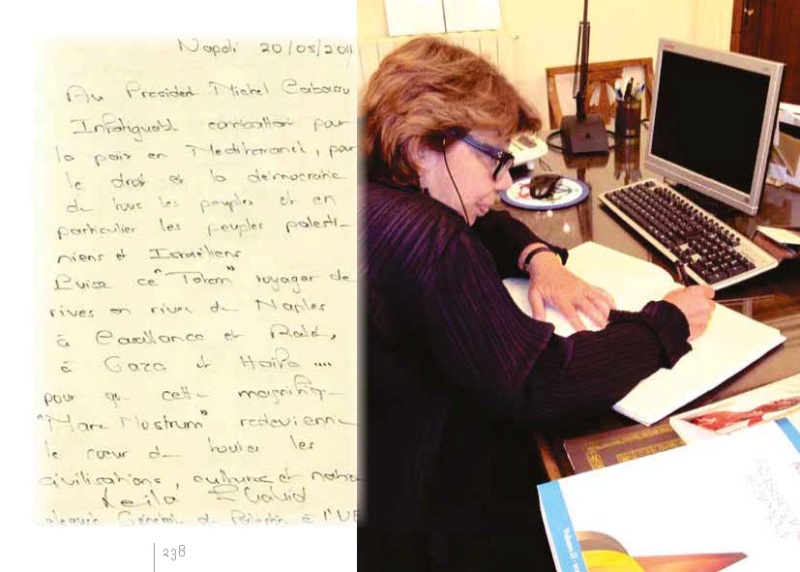 Napoli 20/05/2011
Au President Michel Cabassu
Infatiguable combattan pour
la paix en Mediteranei, pour
le droit et la démocratie
de tous les peuples et en
particulier les peuples palesti-
niens et Israeliens
Puisse ce "Totem" voyager de
rives en rives de Naples
à et
à Gaza et Haifa ....
pour que cette magnifique
"Mare Nostrum" redevienne
le cœur de toutes les
civilisations, cultures et
Leila Shahid
Général de Palestine à l'UE
238